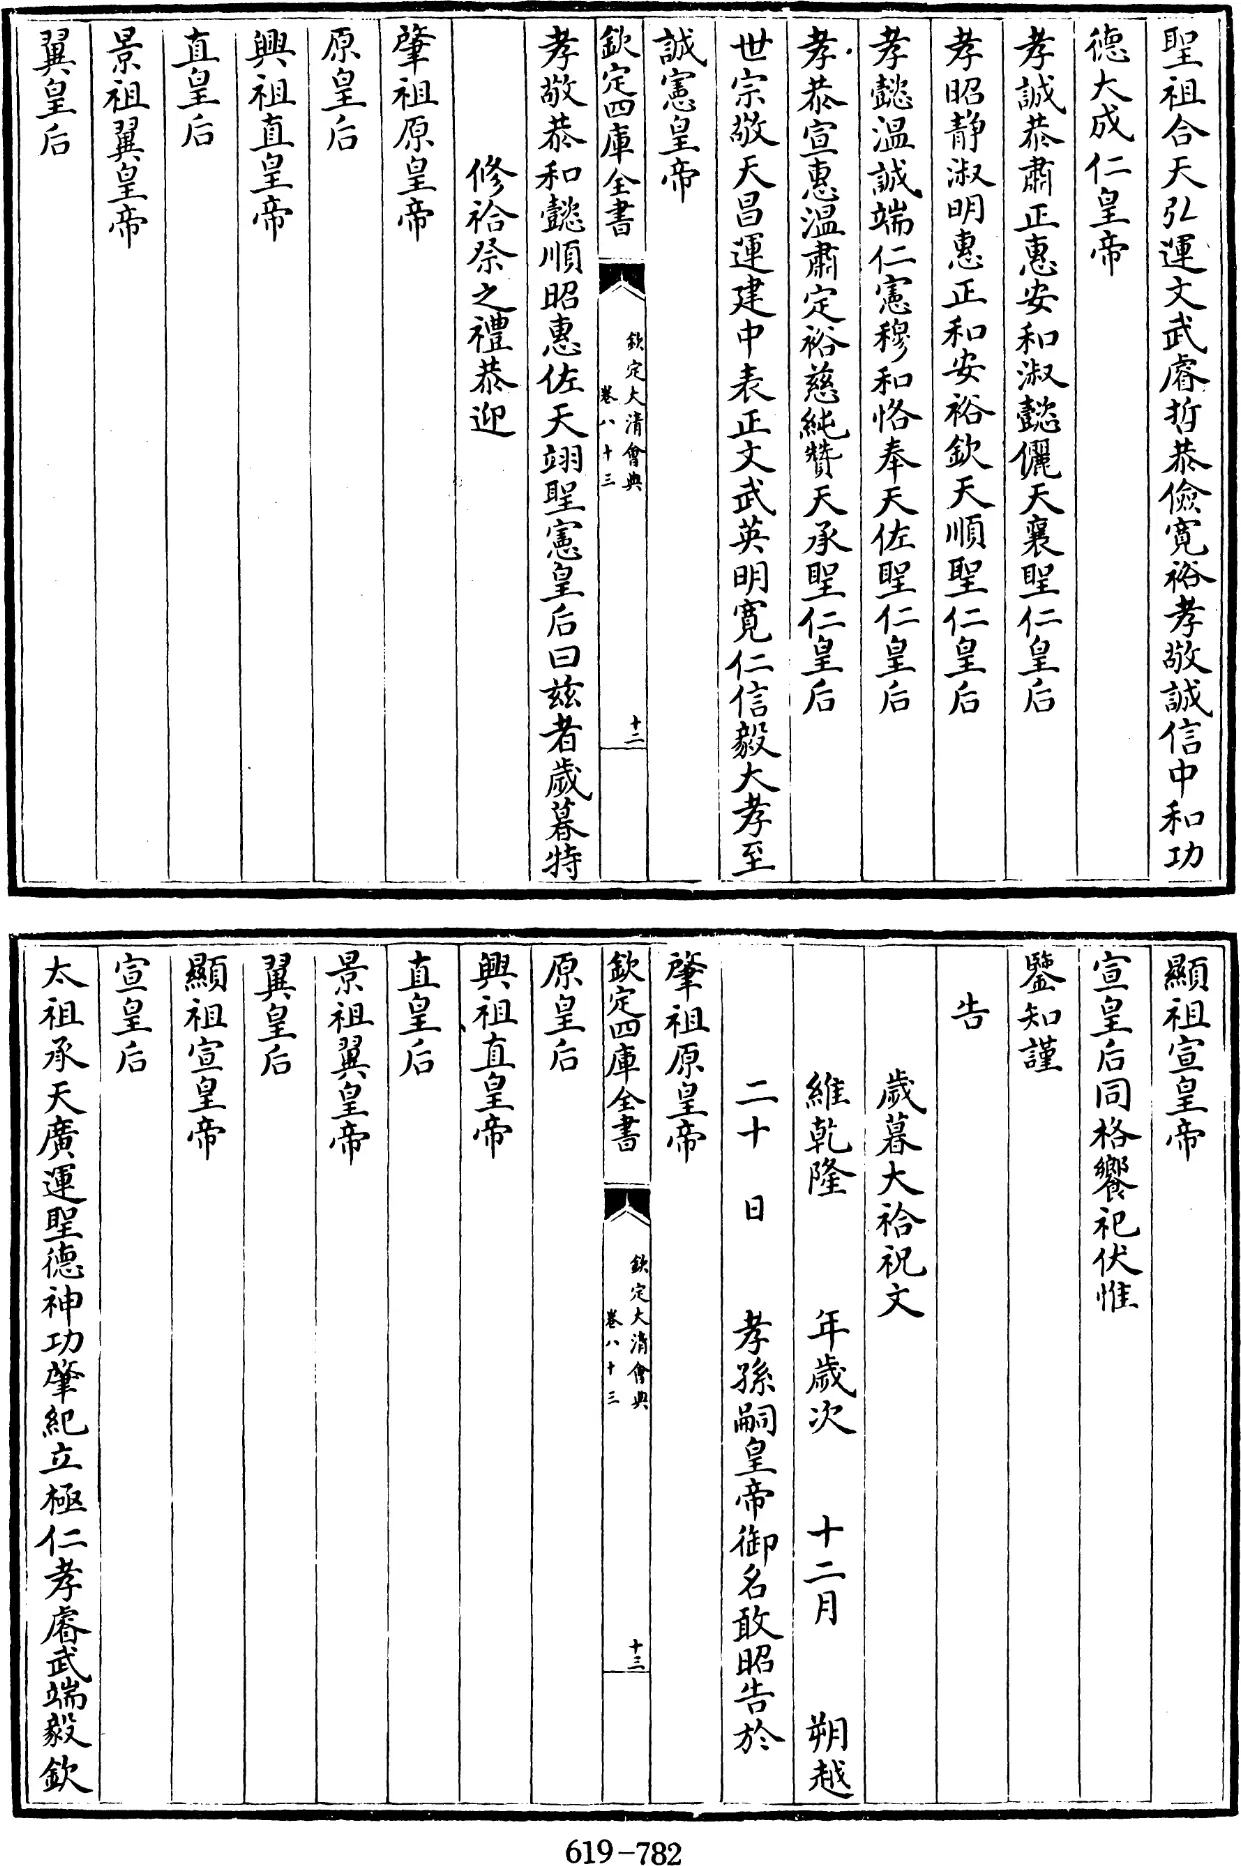 聖祖合天弘運文武睿哲恭儉寬裕孝敬誠信中和功
德大成仁皇帝
孝誠恭肅正惠安和淑懿儷天襄聖仁皇后
孝昭靜淑明惠正和安裕欽天順聖仁皇后
孝懿溫誠端仁憲穆和恪奉天佐聖仁皇后
孝恭宣惠溫肅定裕慈純贊天承聖仁皇后
世宗敬天昌運建中表正文武英明寬仁信毅大孝至
誠憲皇帝
欽定四庫全書
欽定大清會典
卷八十三
十二
孝敬恭和懿順昭惠佐天翊聖憲皇后曰茲者歲暮特
修祫祭之禮恭迎
肇祖原皇帝
原皇后
興祖直皇帝
直皇后
景祖翼皇帝
翼皇后
顯祖宣皇帝
宣皇后同格饗祀伏惟
鑒知謹
告
歲暮大祫祝文
維乾隆 年歲次 十二月 朔越
二十 日 孝孫嗣皇帝御名敢昭告於
肇祖原皇帝
欽定四庫全書
欽定大清會典
卷八十三
十三
原皇后
興祖直皇帝
直皇后
景祖翼皇帝
翼皇后
顯祖宣皇帝
宣皇后
太祖承天廣運聖德神功肇紀立極仁孝睿武端毅欽
619-782